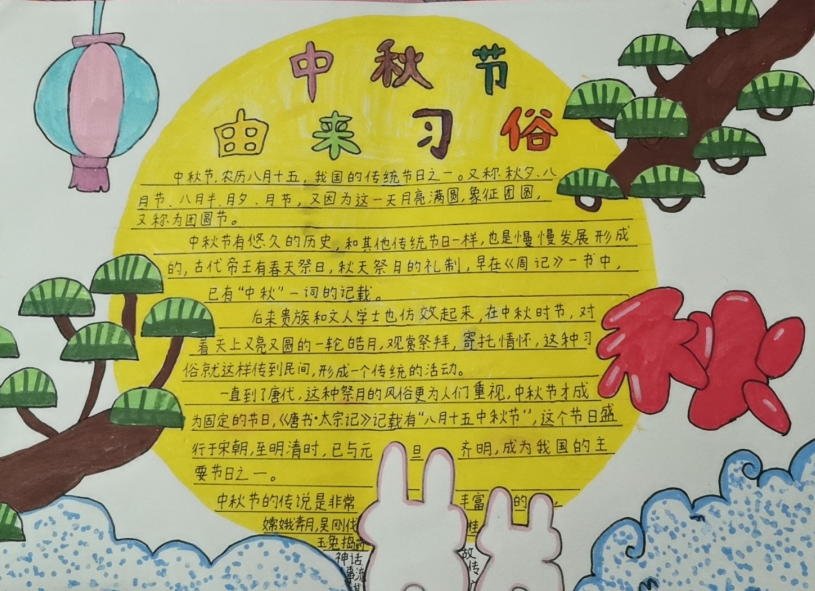 中秋节
由来习俗
中秋节,农历八月十五,我国的传统节日之一。又称秋夕、八
月节、八月半、月夕、月节,又因为这一天月亮满圆,象征团圆,
又称为团圆节。
中秋节有悠久的历史,和其他传统节日一样,也是慢慢发展形成
的,古代帝王有春天祭日,秋天祭月的礼制,早在《周记》一书中,
已有“中秋”一词的记载。
后来贵族和文人学士也仿效起来,在中秋时节,对
着天上又亮又圆的一轮皓月,观赏祭拜,寄托情怀,这种习
俗就这样传到民间,形成一个传统的活动。
一直到了唐代,这种祭月的风俗更为人们重视,中秋节才成
为固定的节日,《唐书·太宗记》记载有“八月十五中秋节”,这个节日盛
行于宋朝,至明清时,已与元旦齐明,成为我国的主
要节日之一。
中秋节的传说是非常丰富的,
嫦娥奔月,吴刚伐桂
玉兔捣
神话故
事流传
秋